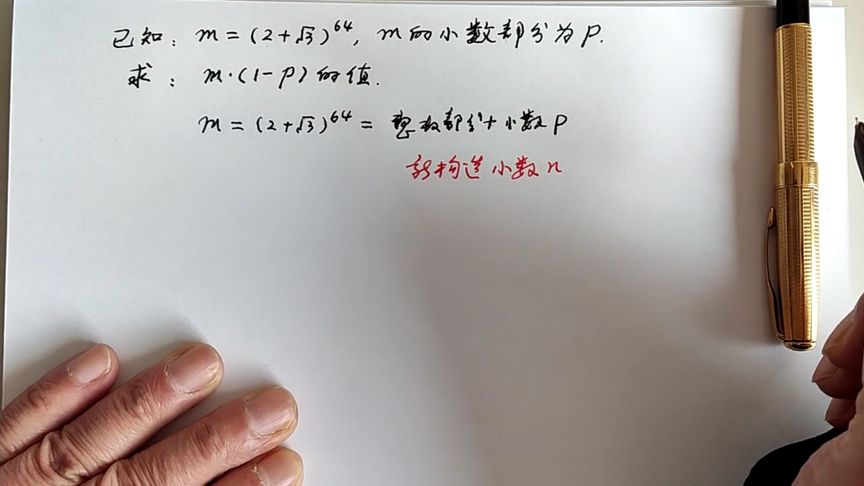 已知：m=(2+√3)^64, m的小数部分为P.
求：m·(1-P)的值.
m=(2+√3)^64=整数部分+小数P
新构造小数n